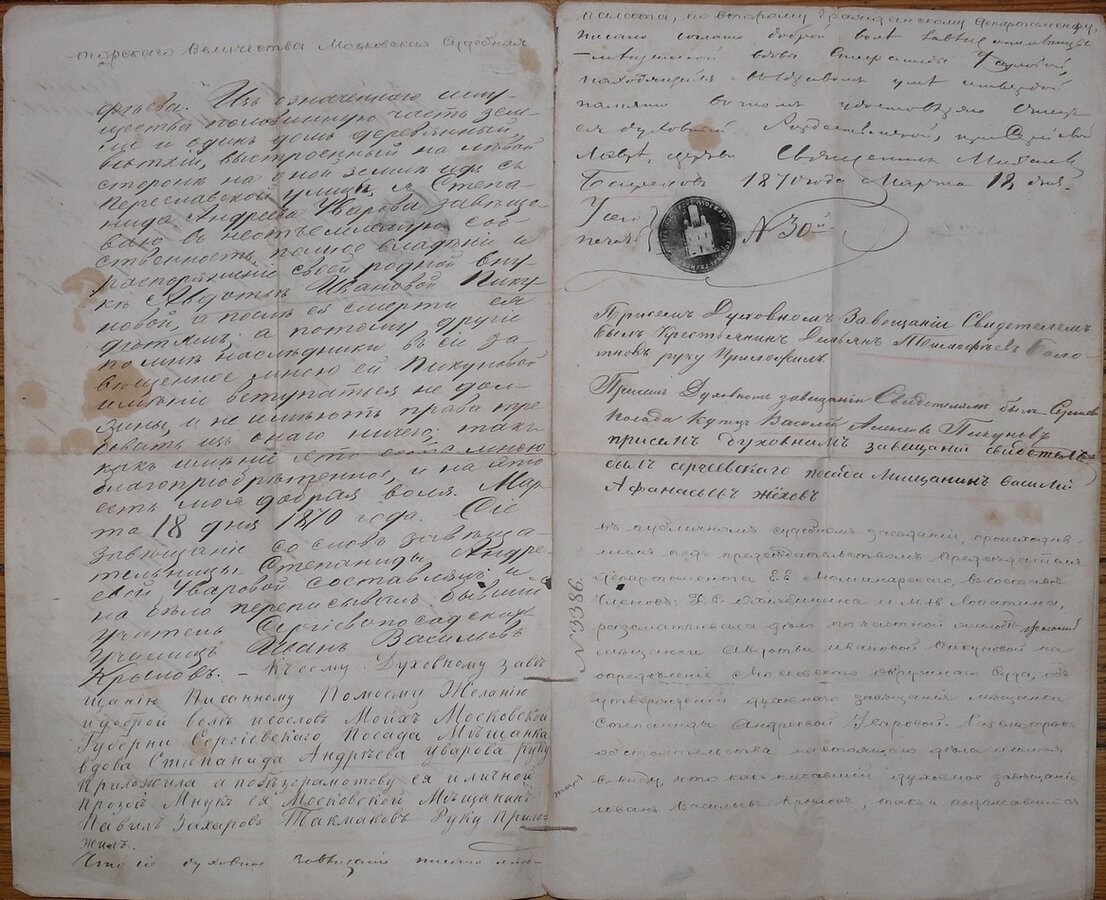 торскаго Величества Московская Судебная
фѣева. Изъ означеннаго иму-
щества половинную часть зем-
ли и одинъ домъ деревянный
ветхій, выстроенный на лѣвой
сторонѣ на оной землѣ идя съ
Переславской улицы, я Степа-
нида Андреева Уварова завѣща-
ваю въ неотъемлемую соб-
ственность, полное владѣніе и
распоряженіе своей родной вну-
кѣ Авдотьѣ Ивановой Пику-
новой, а послѣ ея смерти ея
дѣтямъ, а потому другіе
по мнѣ наслѣдники въ ея за-
вѣщенное мною ей Пикуновой
имѣніе вступаться не дол-
жны, и не имѣютъ права тре-
бовать изъ онаго ничего; такъ
какъ имѣніе это есть мною
благопріобрѣтенное, и на это
есть моя добрая воля. Мар-
та 18 дня 1870 года. Сіе
завѣщаніе со словъ завѣща-
тельницы Степаниды Андре-
евой Уваровой составлялъ и
на бѣло переписывалъ бывшій
учитель Сергіевопосадскихъ
училищъ Иванъ Васильевъ
Крыловъ. – Къ сему Духовному завѣ
щанію Писанному Помоему Желанію
и доброй волѣ исословъ Моихъ Московской
Губерни Сергіевскаго Посада Мѣщанка
вдова Стипанида Андрѣева уварова руку
Приложила а побѣзграмотству ея иличной
Прозбѣ Внукъ ея Московской Мѣщанинъ
Павилъ Захаровъ Такмаковъ Руку Прило-
жилъ.
Что сіе духовное завѣщаніе писано мѣщ-
палата, по второму Гражданскому департаменту,
писано согласно доброй волѣ завѣщательницы
вдовы Степаниды Уваровой,
находящейся въ здравомъ умѣ и твердой
памяти въ томъ удостовѣряю Отецъ
ея духовный Рождественской, при Сергіевой
Лаврѣ, церкви Священникъ
1870 года Марта 18 дня.
У сего
печать
№ 30й
Присемъ Духовномъ Завещаніи Свидетелемъ
былъ Крестьянинъ Демьянъ Тимофѣевъ Боло-
тновъ руку Приложилъ.
Присемъ Духовномъ завещаніи Свидетелемъ былъ Сергиев
Посада Купецъ Василій Алексеевъ Пикуновъ
присемъ духовномъ завещаній свидетель
былъ сергеевскаго посада Мищанинъ василій
Афанасьевъ жёховъ
№ 3386.
въ публичномъ судебномъ засѣданіи, происходив-
шемъ подъ предсѣдательствомъ Предсѣдателя
Департамента въ составѣ
Членовъ: и
разсматривала дѣло по частной жалобѣ
мѣщанки Авдотьи Ивановой Пикуновой на
опредѣленіе Московскаго Окружнаго Суда, объ
утвержденіи духовнаго завѣщанія мѣщанки
Степаниды Андреевой Уваровой.
обстоятельства настоящаго дѣла и имѣя
ввиду, что какъ писавшій духовное завѣщаніе
Иванъ Васильевъ Крыловъ, такъ и подписавшійся